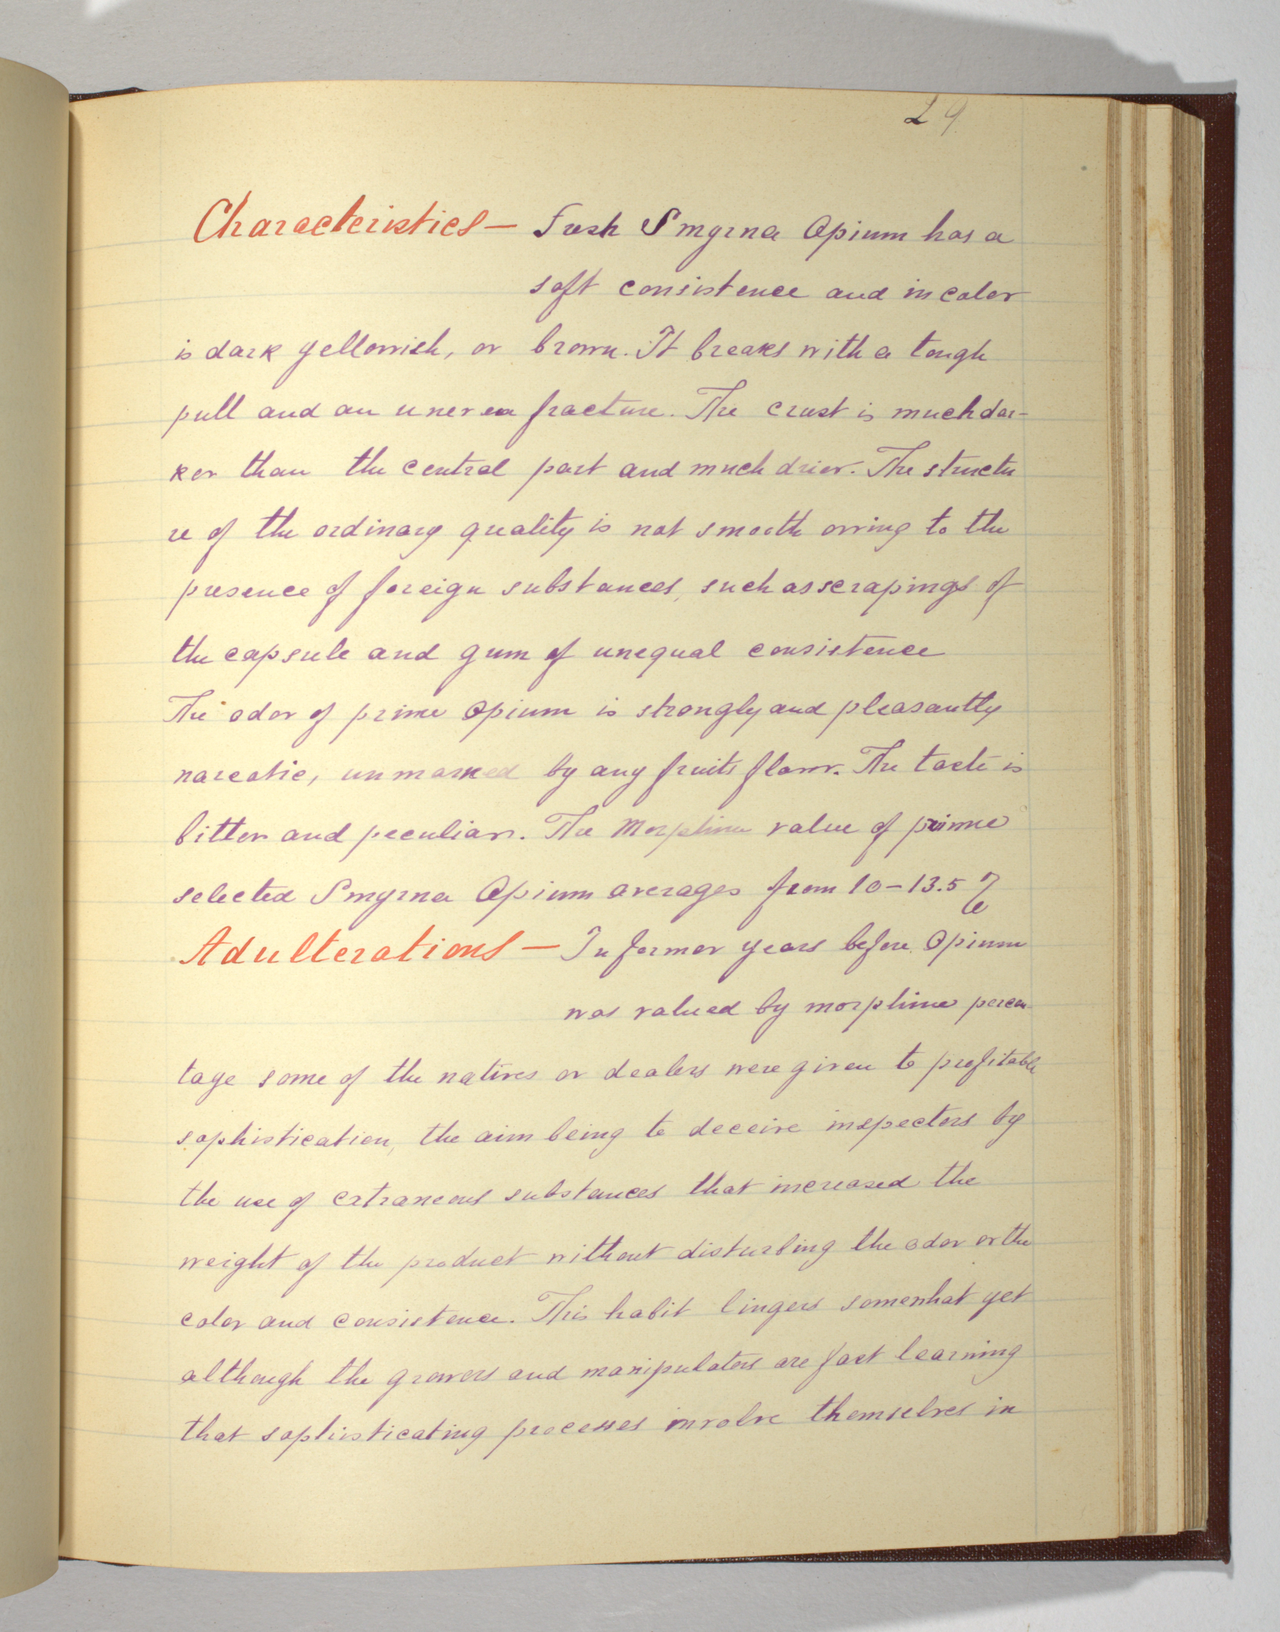 29
Characteristics — Fresh Smyrna Opium has a
soft consistence and in color
is dark yellowish, or brown. It breaks with a tough
pull and an uneven fracture. The crust is much dar-
ker than the central part and much drier. The structu
re of the ordinary quality is not smooth owing to the
presence of foreign substances, such as scrapings of
the capsule and gum of unequal consistence
The odor of prime Opium is strongly and pleasantly
narcotic, unmarked by any fruits flavor. The taste is
bitter and peculiar. The Morphine value of prime
selected Smyrna Opium averages from 10-13.5 %
Adulterations — In former years before Opium
was valued by morphine percen-
tage some of the natives or dealers were given to profitable
sophistication, the aim being to deceive inspectors by
the use of extraneous substances that increased the
weight of the product without disturbing the odor or the
color and consistence. This habit lingers somewhat yet
although the growers and manipulators are fast learning
that sophisticating processes involve themselves in